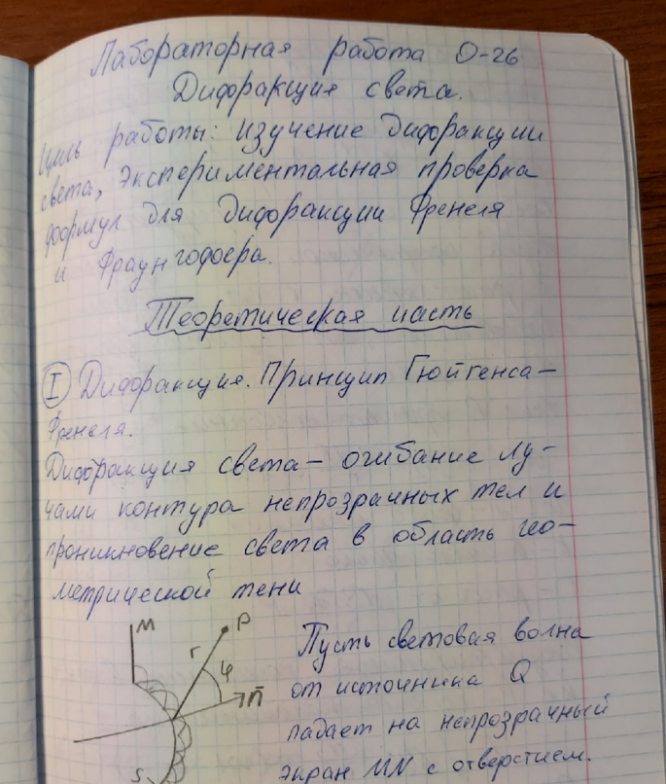 Лабораторная работа О-26
Дифракция света.
Цель работы: изучение дифракции
света, экспериментальная проверка
формул для дифракции Френеля
и Фраунгофера.
Теоретическая часть
I Дифракция. Принцип Гюйгенса-
Френеля.
Дифракция света – огибание лу-
чами контура непрозрачных тел и
проникновение света в область гео-
метрической тени
M
P
r
φ
n
S
Пусть световая волна
от источника Q
падает на непрозрачный
экран MN с отверстием.